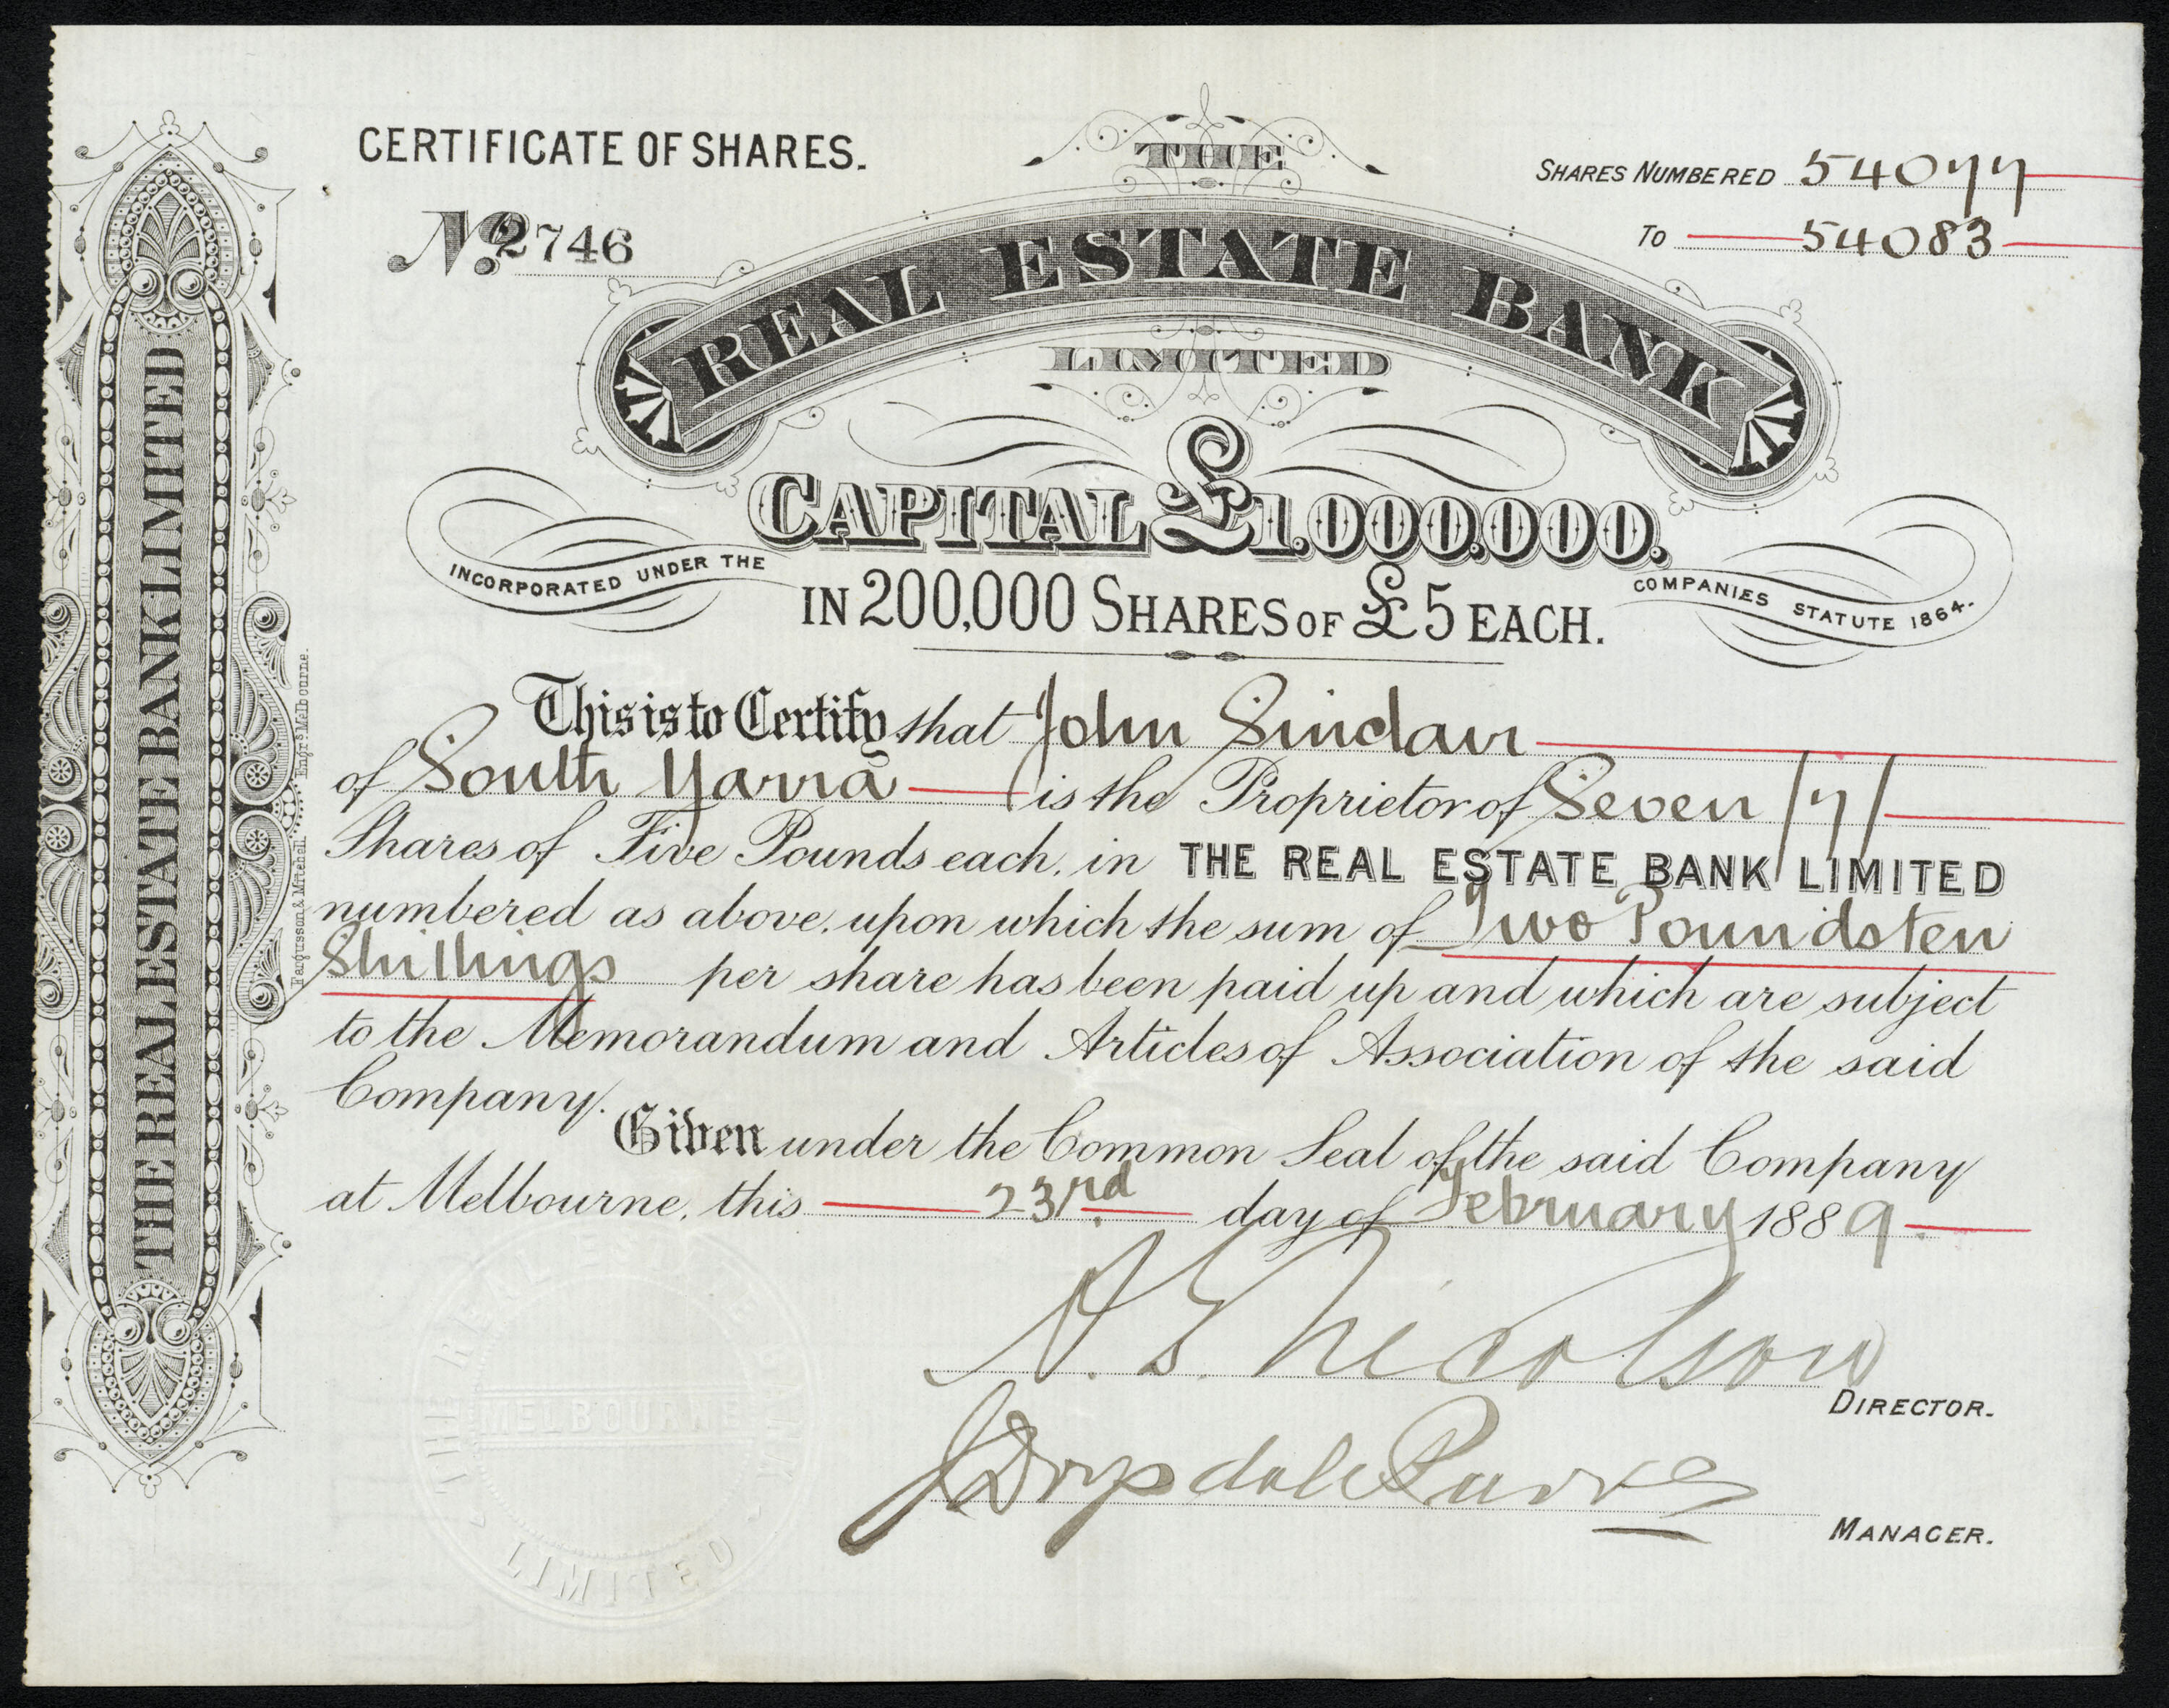 CERTIFICATE OF SHARES.
No. 2746
SHARES NUMBERED 54077
To 54083
THE
REAL ESTATE BANK
LIMITED
CAPITAL £1.000.000.
INCORPORATED UNDER THE COMPANIES STATUTE 1864.
IN 200,000 SHARES OF £5 EACH.
This is to Certify that John Sinclair
of South Yarra is the Proprietor of Seven /7/
Shares of Five Pounds each, in THE REAL ESTATE BANK LIMITED
numbered as above, upon which the sum of Two Pounds ten
Shillings per share has been paid up and which are subject
to the Memorandum and Articles of Association of the said
Company.
Given under the Common Seal of the said Company
at Melbourne, this 23rd day of February 1889.
Nicolson
DIRECTOR.
Drysdale
MANAGER.
THE REAL ESTATE BANK LIMITED
Fergusson & Mitchell. Engrs Melbourne.
THE REAL
MELBOURNE
LIMITED